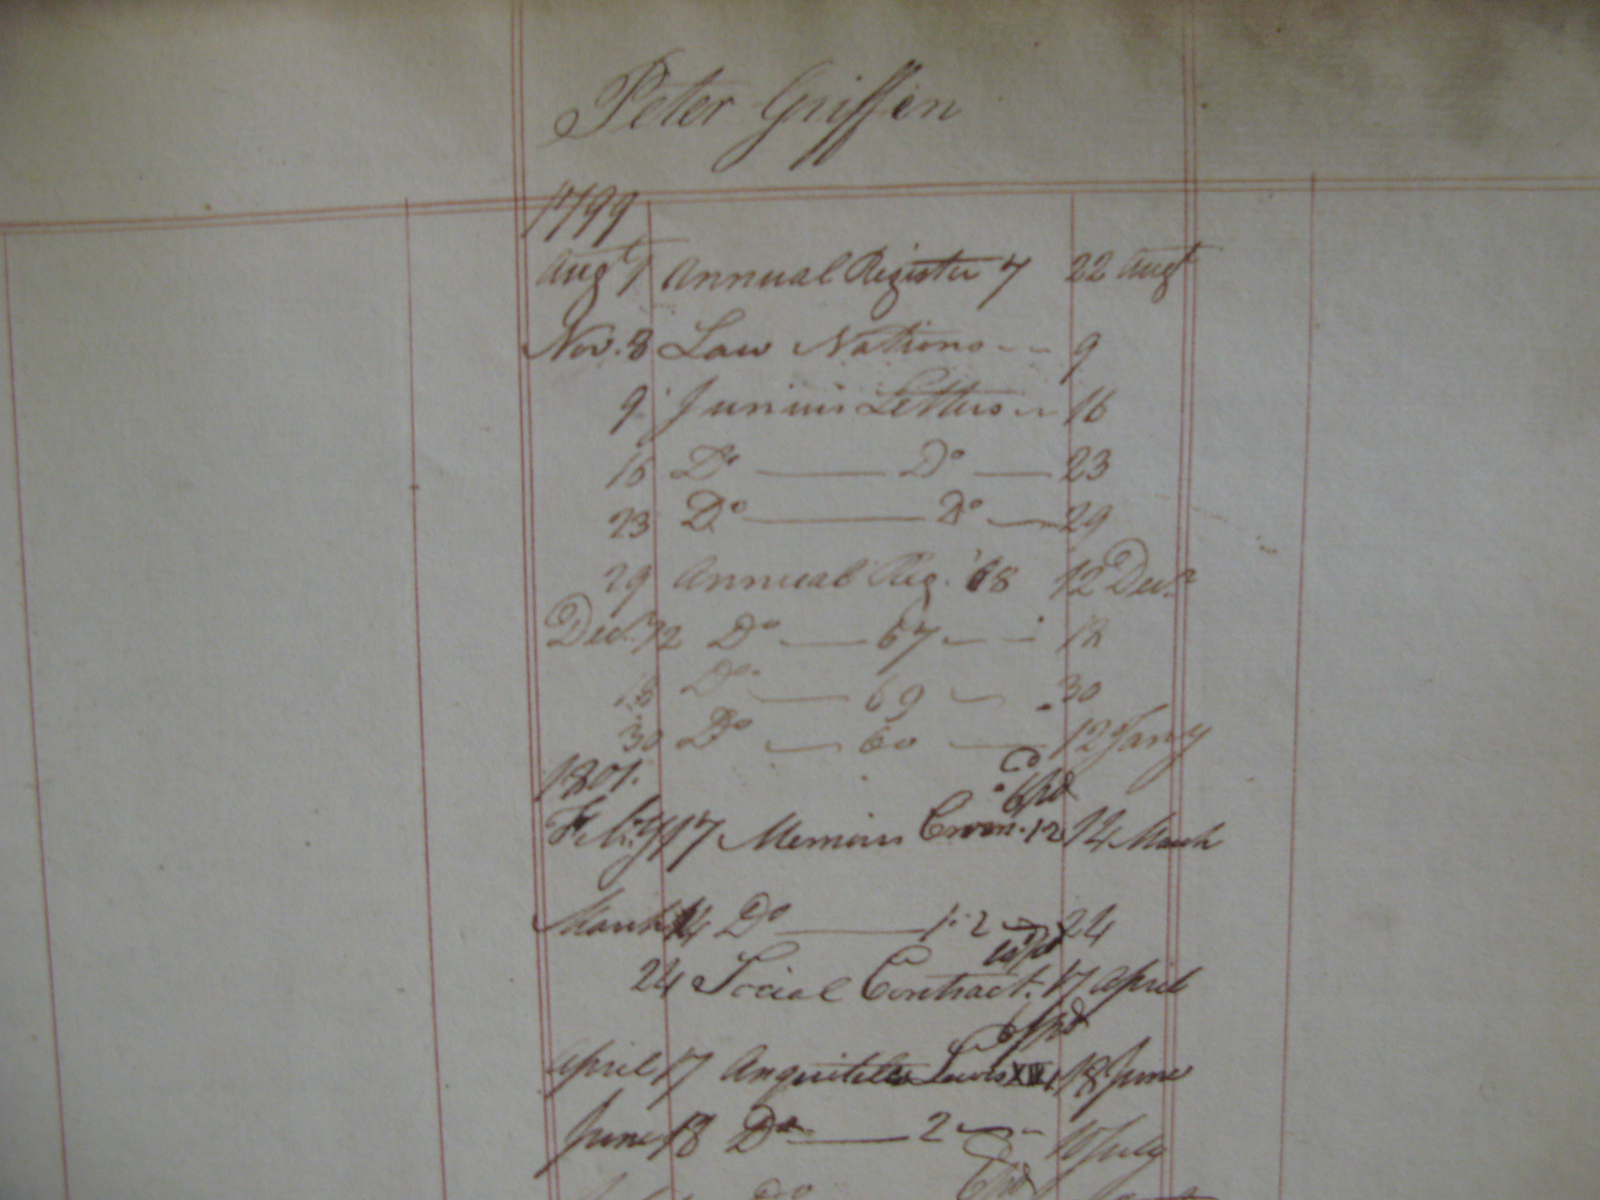 Peter Griffen
1799
Augt 1 Annual Register 7 22 Augt
Nov. 8 Law Nations - - 9
9 Junius Letters 16
16 Do — Do — 23
23 Do — Do — 29
29 Annual Reg. 68 12 Decr
Decr. 12 Do — 67 — 12
Do — 69 — 30
30 Do — 60 — 12 Jany
1801.
Feby 17 Memoirs Crom. 12 14 March
March 14 Do — 1. 2 24
24 Social Contract. 17 April
6/pd
April 17 Anquitells Lewis XIV 18 June
June 18 Do — 2 10 July